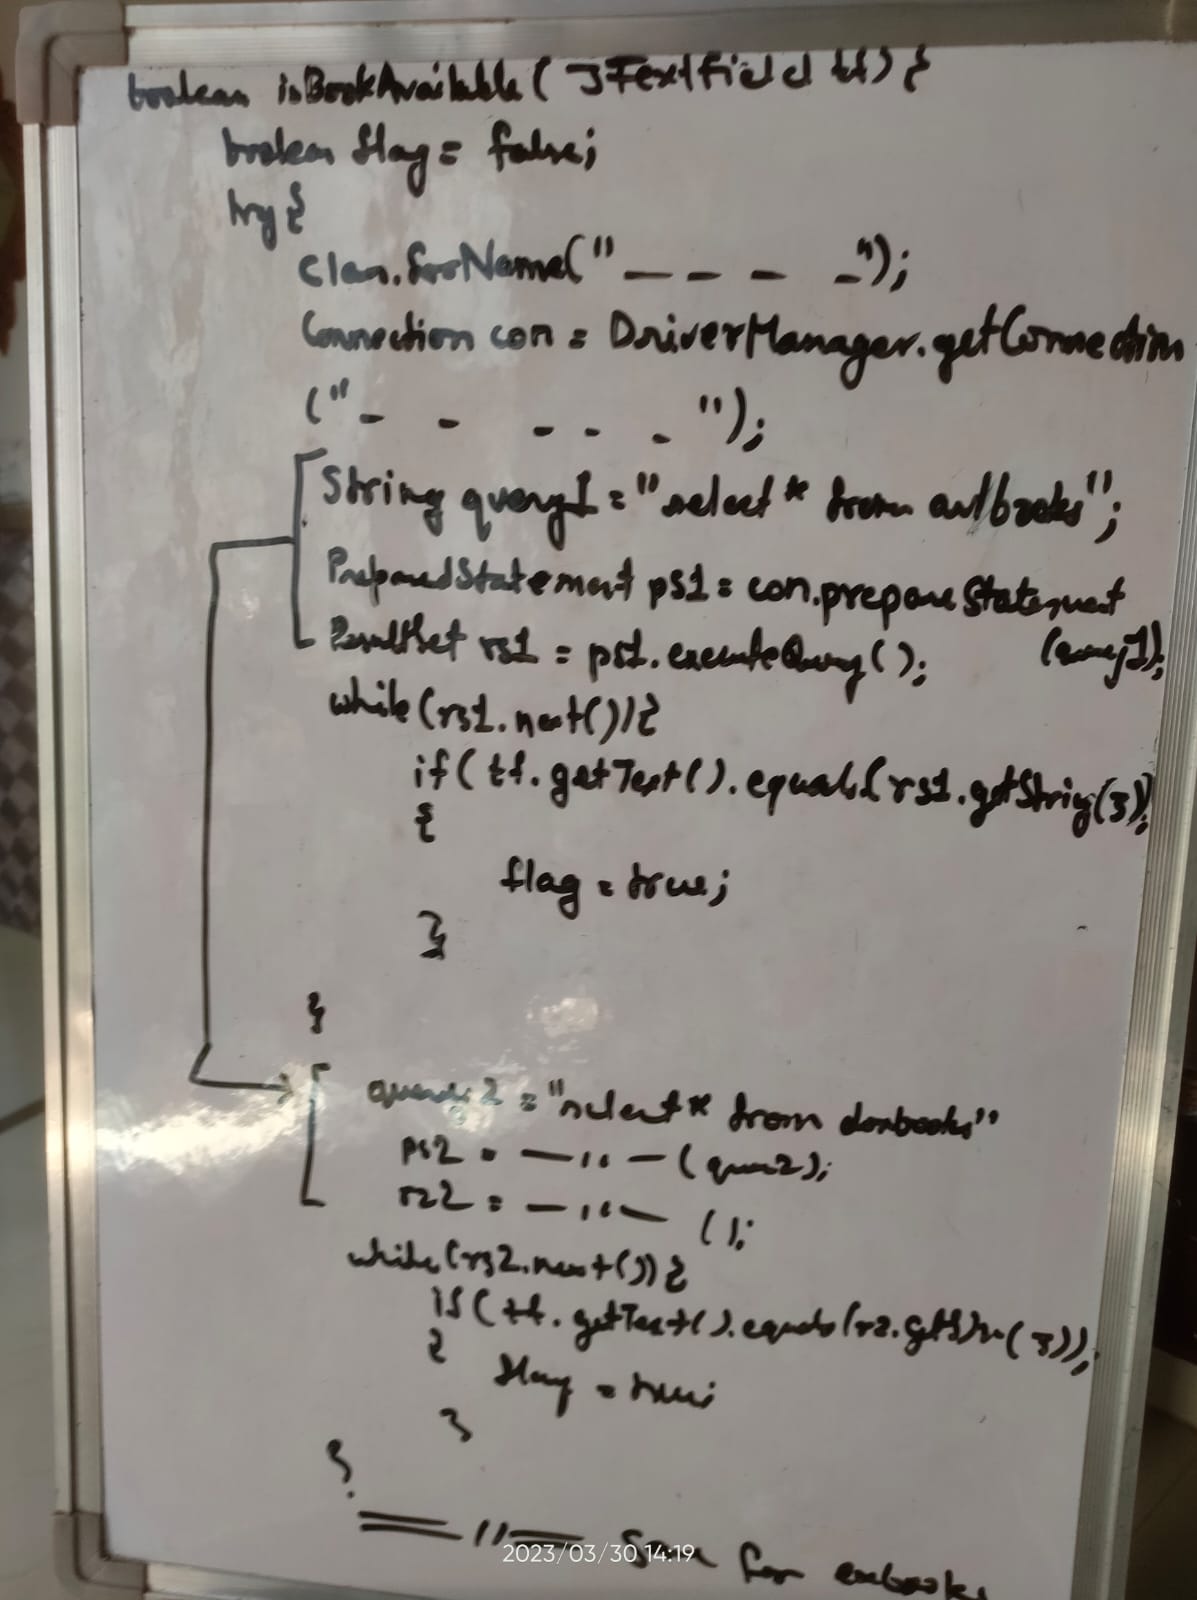 boolean isBookAvailable( JTextField tf) {
boolean flag = false;
try {
class.forName("_ _ _ _");
Connection con = DriverManager.getConnection
("- - - - - ");
String query1 = "select * from avlbooks";
PreparedStatement ps1 = con.prepareStatement
(query1);
ResultSet rs1 = ps1.executeQuery();
while(rs1.next()){
if( tf.getText().equals(rs1.getString(3));
{
flag = true;
}
}
query2 = "select * from donbooks"
ps2 = —〃—(query2);
rs2 = —〃— ();
while(rs2.next()) {
if( tf.getText().equals(rs. (3));
{
flag = true;
}
}
=〃= for exbooks
2023/03/30 14:19